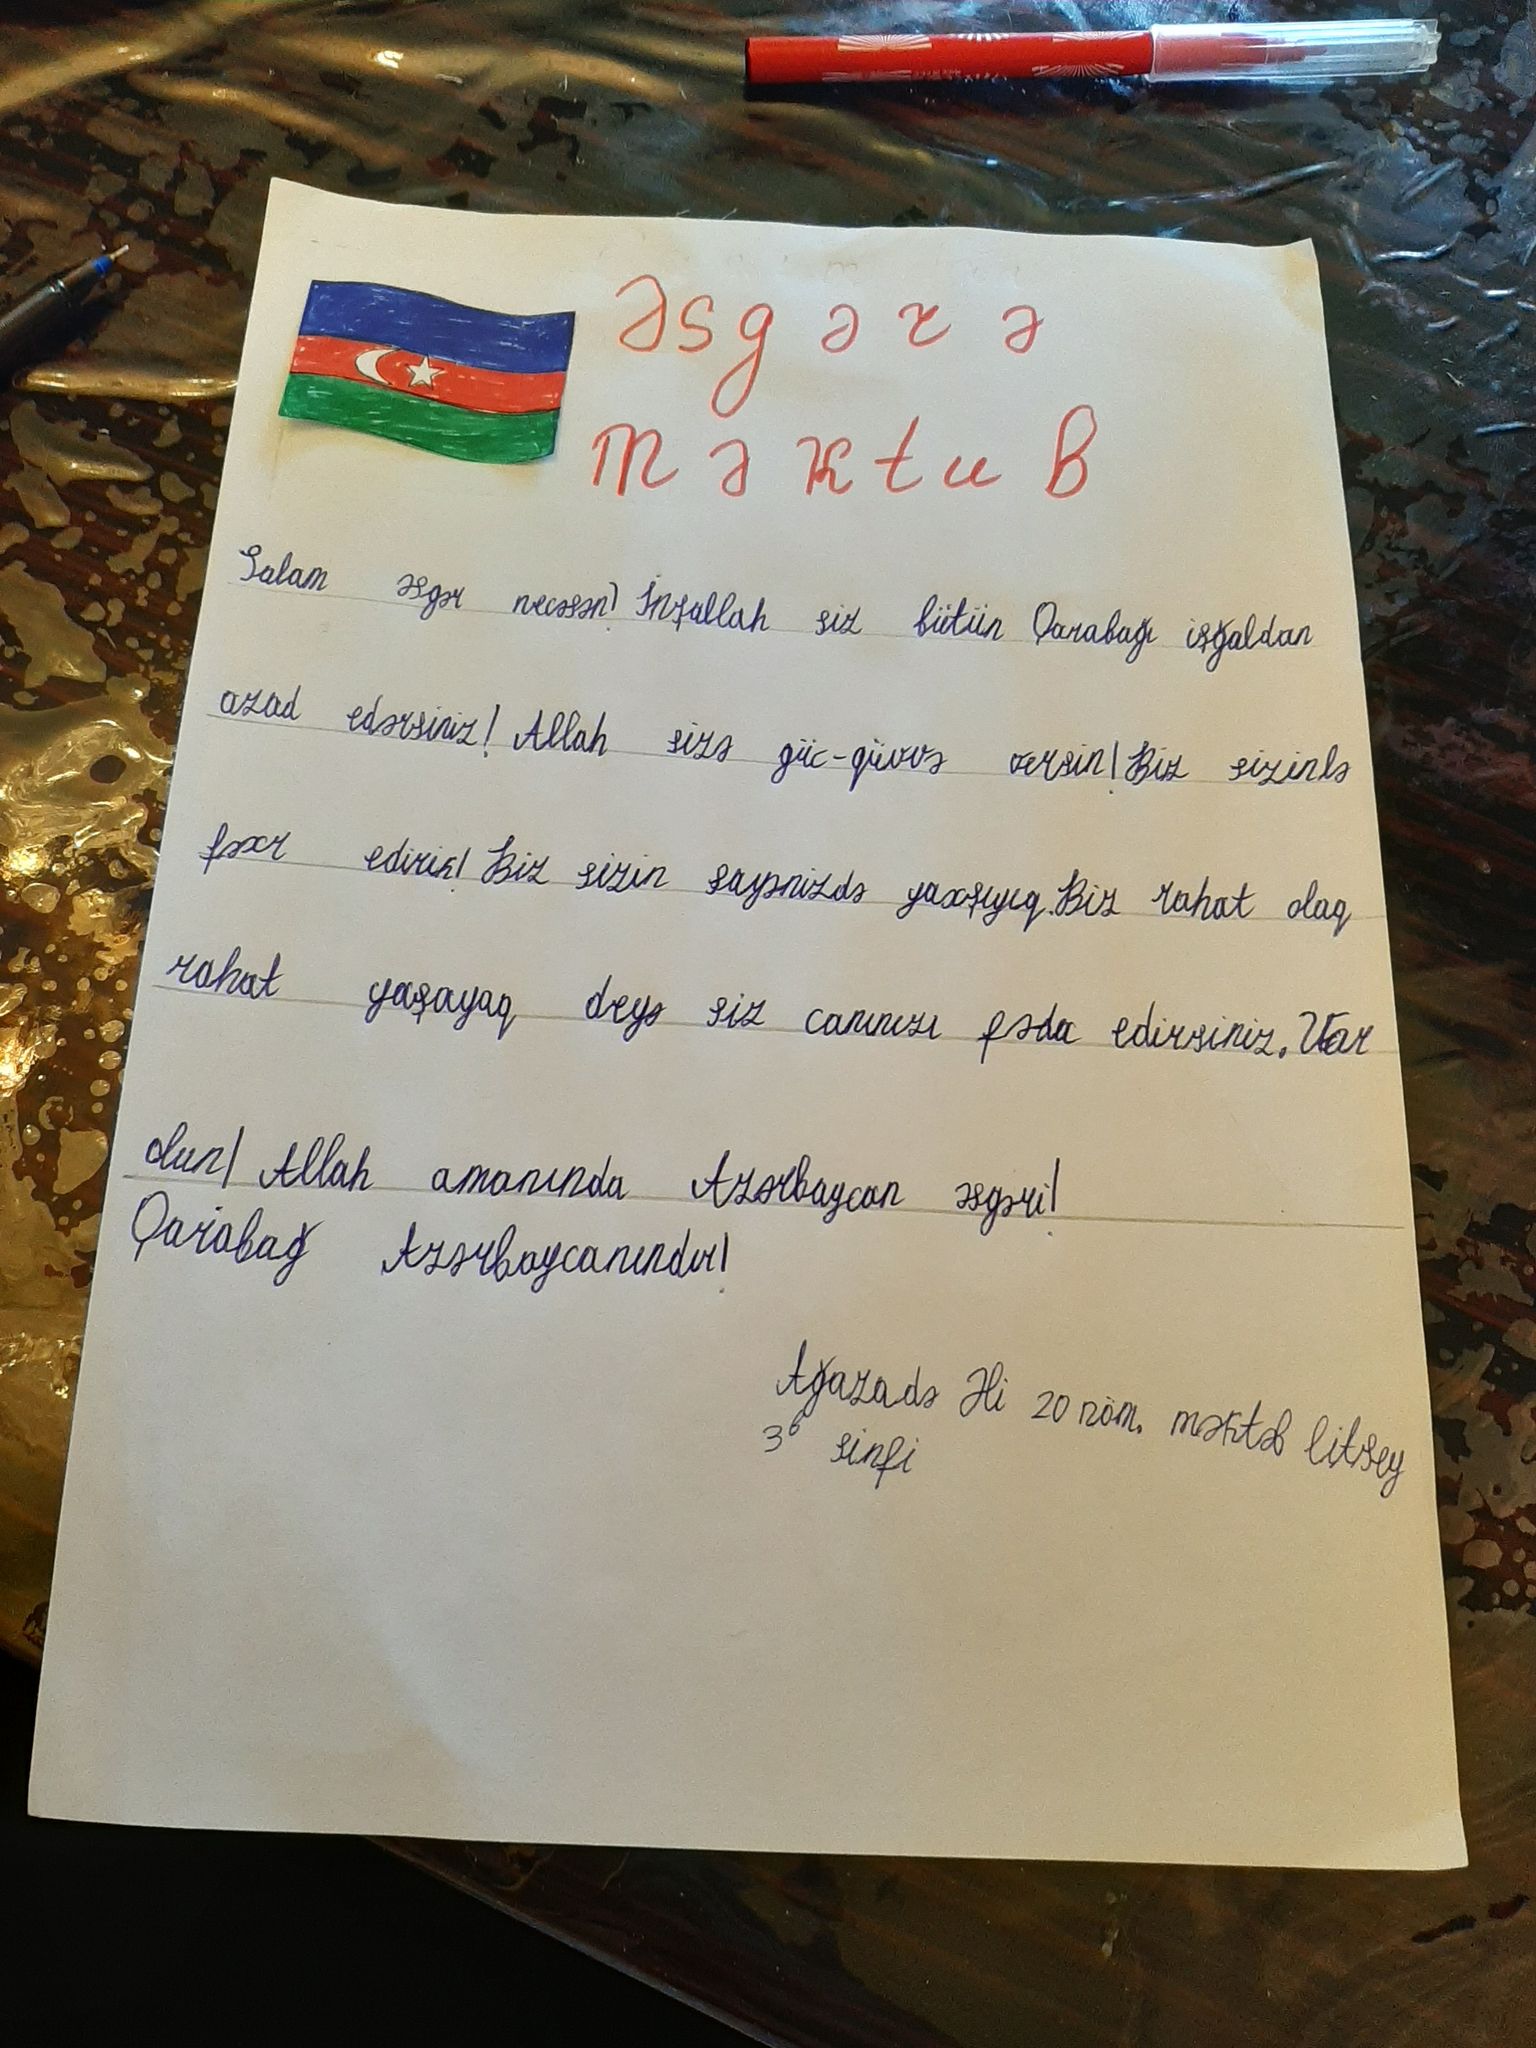 Əsgərə
Məktub
Salam əsgər necəsən! İnşallah siz bütün Qarabağı işğaldan
azad edərsiniz! Allah sizə güc-qüvvə versin! Biz sizinlə
fəxr edirik! Biz sizin sayənizdə yaxşıyıq. Biz rahat olaq
rahat yaşayaq deyə siz canınızı fəda edirsiniz. Var
olun! Allah amanında Azərbaycan əsgəri!
Qarabağ Azərbaycanındır!
Ağazadə Əli 20 nöm. məktəb litsey
3ᵇ sinfi